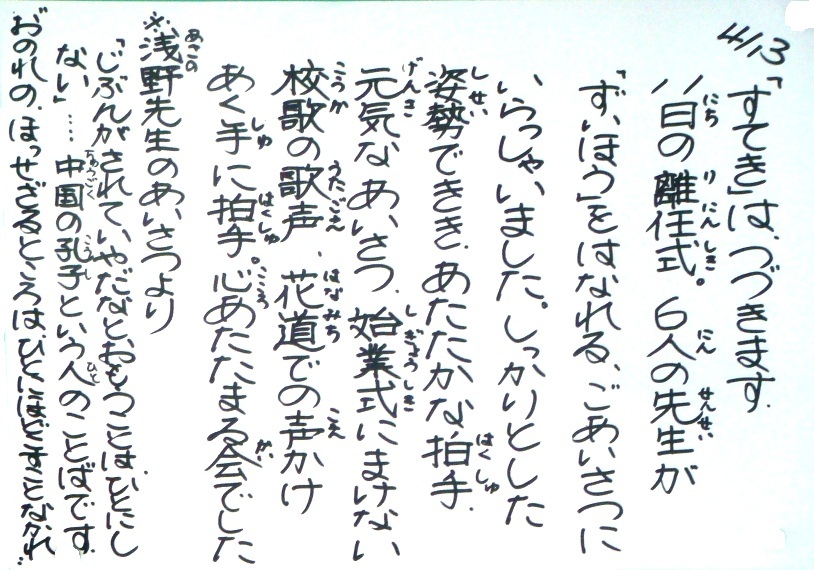 4/13「すてき」は、つづきます.
11日の離任式。6人の先生が
「ず、ほう」をはなれる、ごあいさつに
いらっしゃいました。しっかりとした
姿勢できき、あたたかな拍手.
元気なあいさつ、始業式にまけない
校歌の歌声、花道での声かけ
あく手に拍手。心あたたまる会でした
※浅野先生のあいさつより
「じぶんがされて、いやだなと、おもうことは、ひとにし
ない」……中国の孔子という人のことばです.
おのれの、ほっせざるところはひとにほどすことなかれ